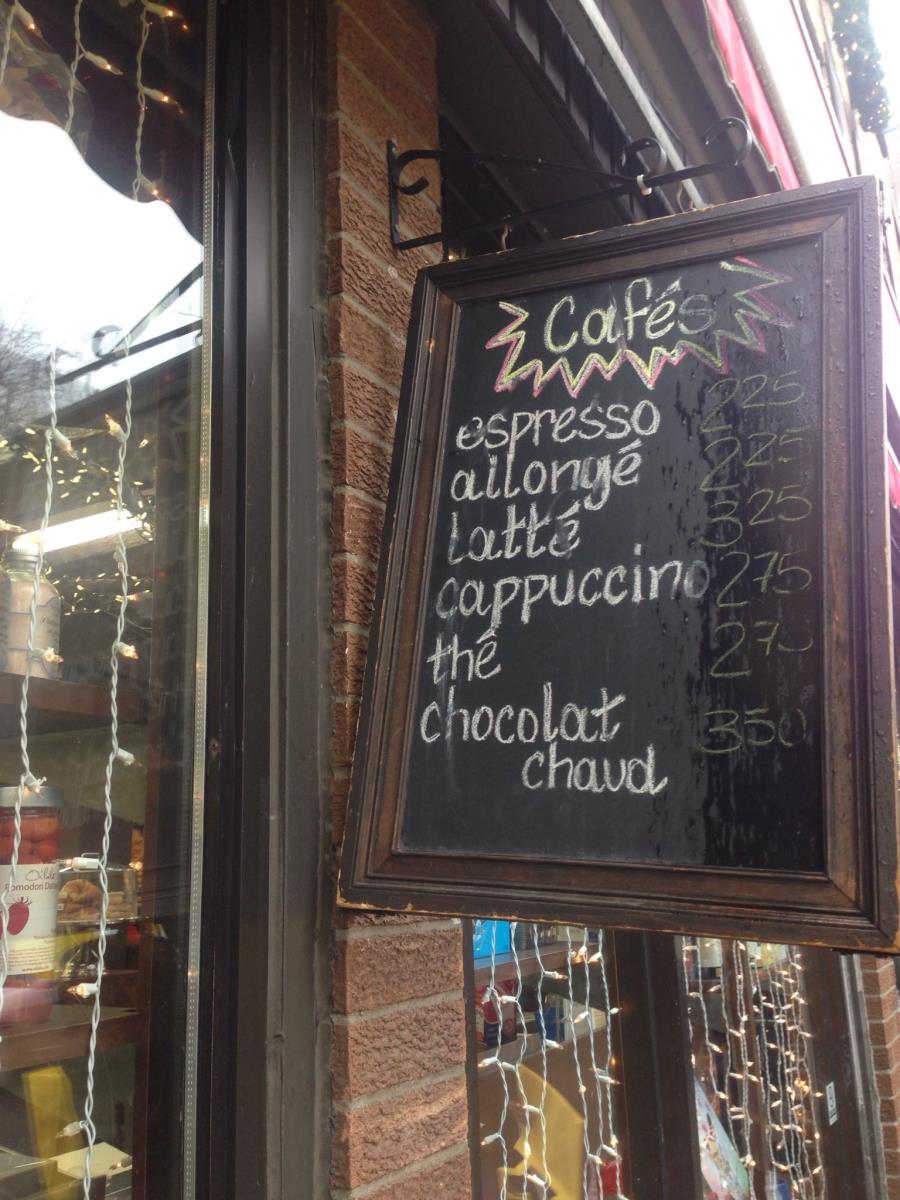 Cafés
espresso 225
allongé 225
latté 325
cappuccino 275
thé 275
chocolat 350
chaud
Pomodori